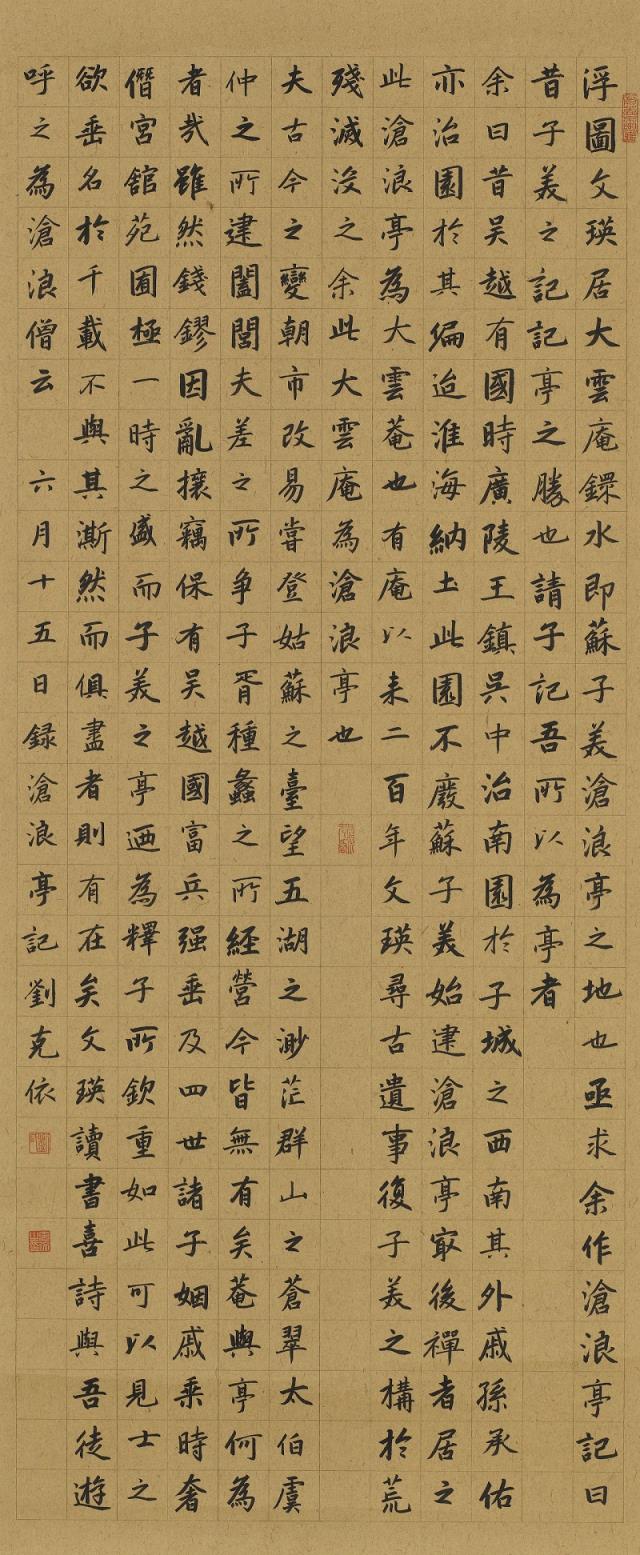 浮圖文瑛居大雲庵鐶水即蘇子美滄浪亭之地也亟求余作滄浪亭記曰
昔子美之記記亭之勝也請子記吾所以為亭者
余曰昔吴越有國時廣陵王鎮吳中治南園於子城之西南其外戚孫承佑
亦治園於其偏迨淮海納土此園不廢蘇子美始建滄浪亭㝡後禪者居之
此滄浪亭為大雲菴也有庵以来二百年文瑛尋古遺事復子美之構於荒
殘滅没之余此大雲庵為滄浪亭也
夫古今之變朝市改易嘗登姑蘇之臺望五湖之渺茫群山之蒼翠太伯虞
仲之所建闔閭夫差之所争子胥種蠡之所經營今皆無有矣菴與亭何為
者㦲雖然錢鏐因亂攘竊保有吴越國富兵强垂及四世諸子姻戚乘時奢
僭宮館苑囿極一時之盛而子美之亭迺為釋子所欽重如此可以見士之
欲垂名於千載不與其澌然而俱盡者則有在矣文瑛讀書喜詩與吾徒遊
呼之為滄浪僧云 六月十五日録滄浪亭記劉克依